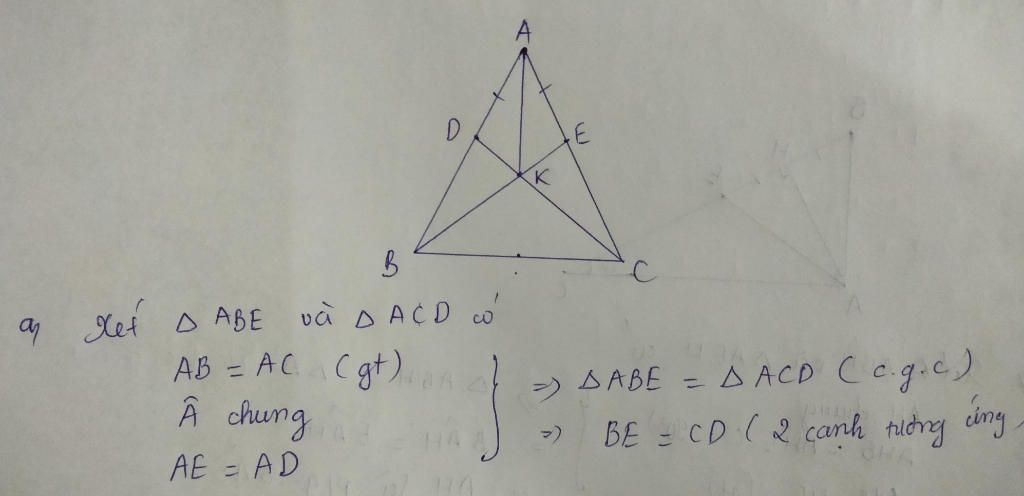 A
D
E
K
B
C
a, Xét Δ ABE và Δ ACD có
AB = AC (gt)
Â chung
AE = AD
=> Δ ABE = Δ ACD ( c.g.c )
=> BE = CD ( 2 cạnh tương ứng )